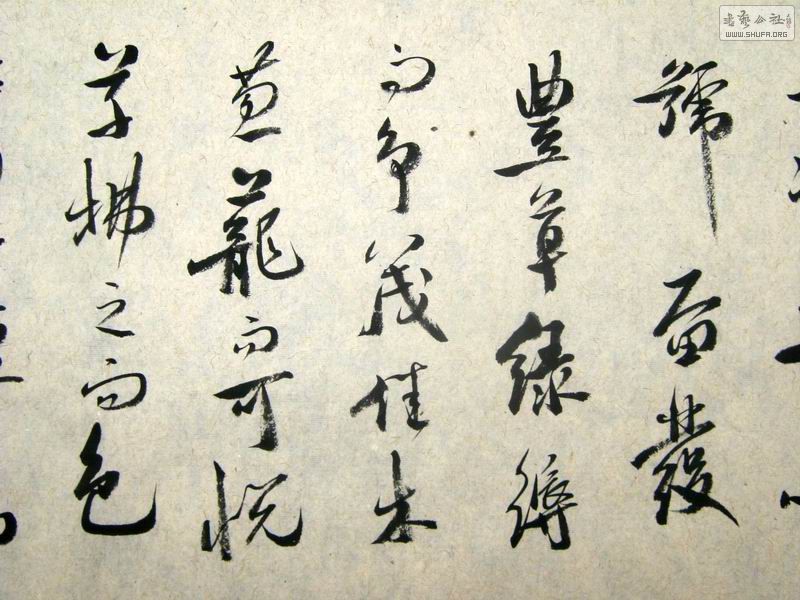 號奮發
豊草綠縟
而爭茂佳木
葱蘢而可悅
草拂之而色
書藝公社
WWW.SHUFA.ORG